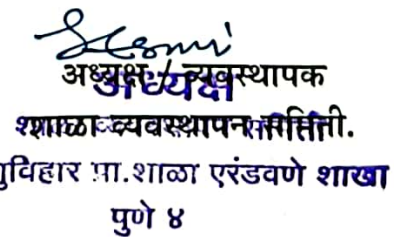 अध्यक्ष / व्यवस्थापक
अध्यक्ष
शाळा व्यवस्थापन समिती.
विहार प्रा.शाळा एरंडवणे शाखा
पुणे ४